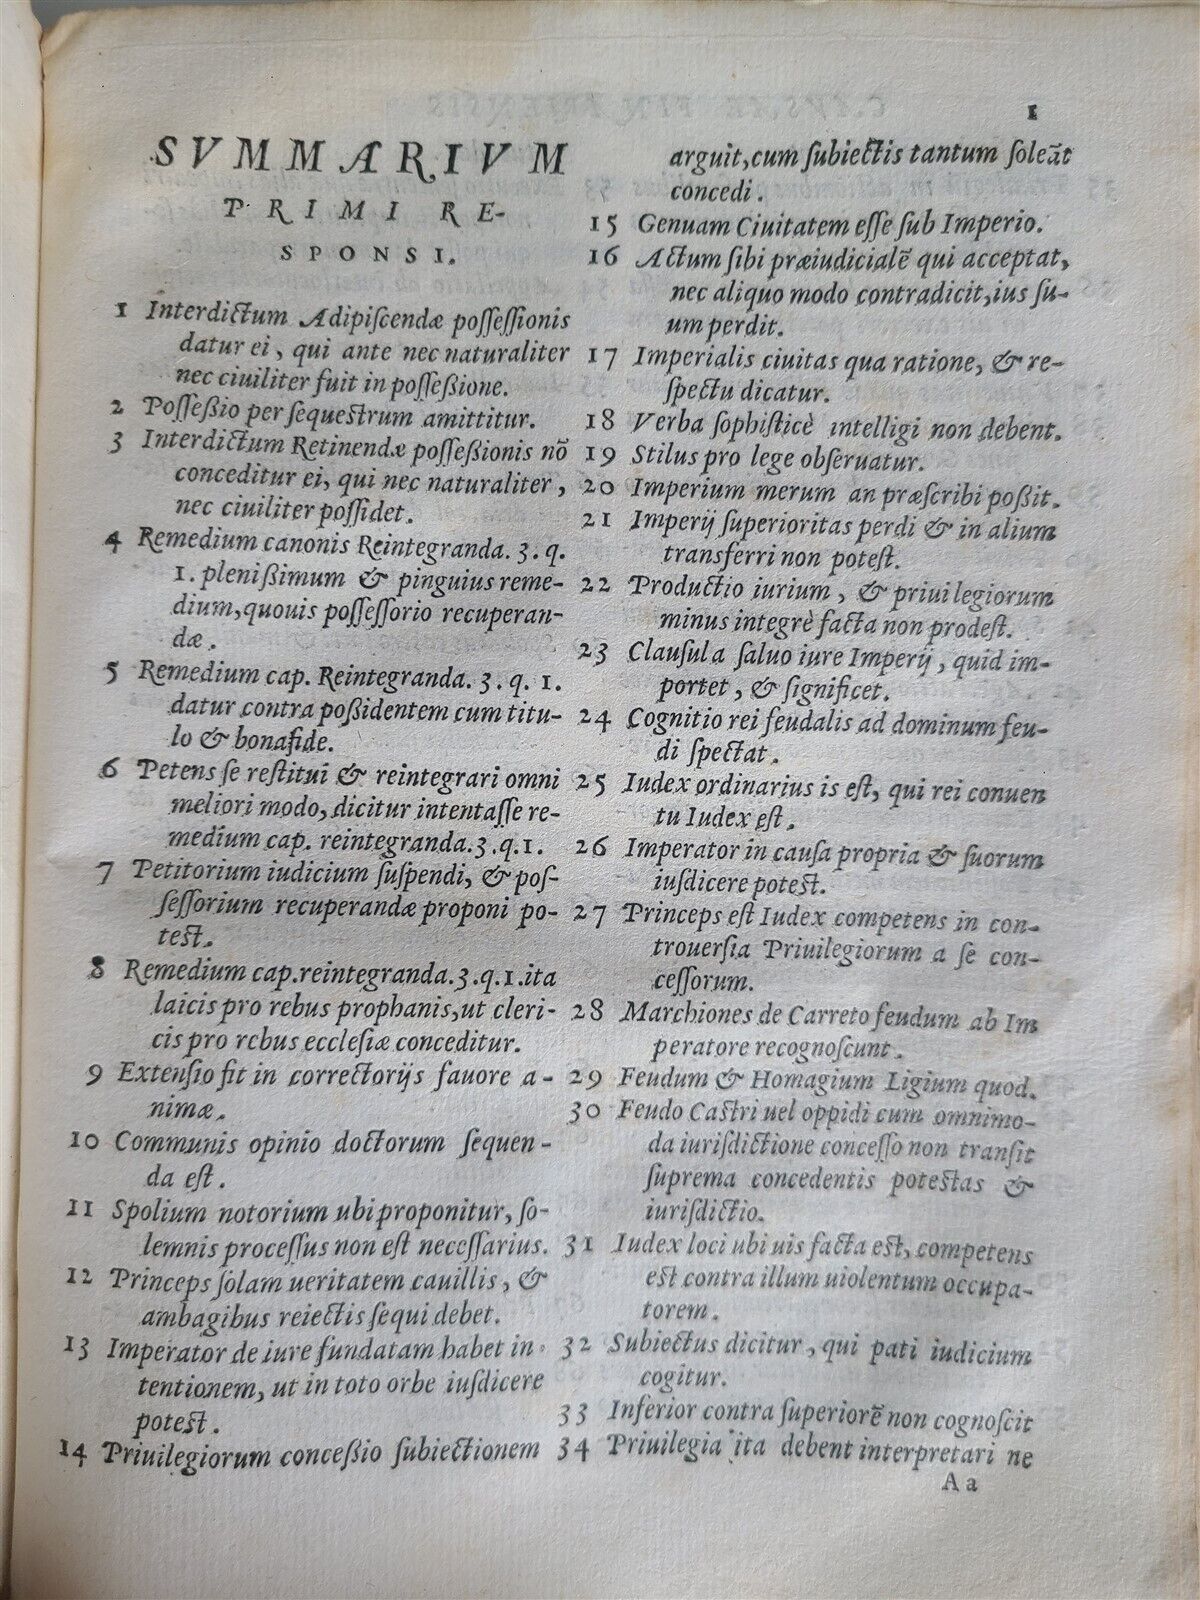 1
SVMMARIVM
PRIMI RE-
SPONSI.
1 Interdictum Adipiſcendæ poſſeſſionis
datur ei, qui ante nec naturaliter
nec ciuiliter fuit in poſſeßione.
2 Poſſeßio per ſequestrum amittitur.
3 Interdictum Retinendæ poſſeßionis nõ
conceditur ei, qui nec naturaliter,
nec ciuiliter poſſidet.
4 Remedium canonis Reintegranda. 3. q.
1. plenißimum & pinguius reme-
dium, quouis poſſeſſorio recuperan-
dæ.
5 Remedium cap. Reintegranda. 3. q. 1.
datur contra poßidentem cum titu-
lo & bonafide.
6 Petens ſe reſtitui & reintegrari omni
meliori modo, dicitur intentaſſe re-
medium cap. reintegranda. 3. q. 1.
7 Petitorium iudicium ſuſpendi, & poſ-
ſeſſorium recuperandæ proponi po-
test.
8 Remedium cap. reintegranda. 3. q. 1. ita
laicis pro rebus prophanis, ut cleri-
cis pro rebus eccleſiæ conceditur.
9 Extenſio fit in correctorijs fauore a-
nimæ.
10 Communis opinio doctorum ſequen-
da est.
11 Spolium notorium ubi proponitur, ſo-
lemnis proceſſus non est neceſſarius.
12 Princeps ſolam ueritatem cauillis, &
ambagibus reiectis ſequi debet.
13 Imperator de iure fundatam habet in-
tentionem, ut in toto orbe iuſdicere
potest.
14 Priuilegiorum conceßio ſubiectionem
arguit, cum ſubiectis tantum ſoleãt
concedi.
15 Genuam Ciuitatem eſſe ſub Imperio.
16 Actum ſibi præiudicialẽ qui acceptat,
nec aliquo modo contradicit, ius ſu-
um perdit.
17 Imperialis ciuitas qua ratione, & re-
ſpectu dicatur.
18 Verba ſophiſticè intelligi non debent.
19 Stilus pro lege obſeruatur.
20 Imperium merum an præſcribi poßit.
21 Imperij ſuperioritas perdi & in alium
transferri non poteſt.
22 Productio iurium, & priuilegiorum
minus integrè facta non prodeſt.
23 Clauſula ſaluo iure Imperij, quid im-
portet, & ſignificet.
24 Cognitio rei feudalis ad dominum feu-
di ſpectat.
25 Iudex ordinarius is eſt, qui rei conuen
tu Iudex eſt.
26 Imperator in cauſa propria & ſuorum
iuſdicere potest.
27 Princeps eſt Iudex competens in con-
trouerſia Priuilegiorum a ſe con-
ceſſorum.
28 Marchiones de Carreto feudum ab Im
peratore recognoſcunt.
29 Feudum & Homagium Ligium quod.
30 Feudo Castri uel oppidi cum omnimo-
da iuriſdictione conceſſo non tranſit
ſuprema concedentis potestas &
iuriſdictio.
31 Iudex loci ubi uis facta eſt, competens
eſt contra illum uiolentum occupa-
torem.
32 Subiectus dicitur, qui pati iudicium
cogitur.
33 Inferior contra ſuperiorẽ non cognoſcit
34 Priuilegia ita debent interpretari ne
Aa